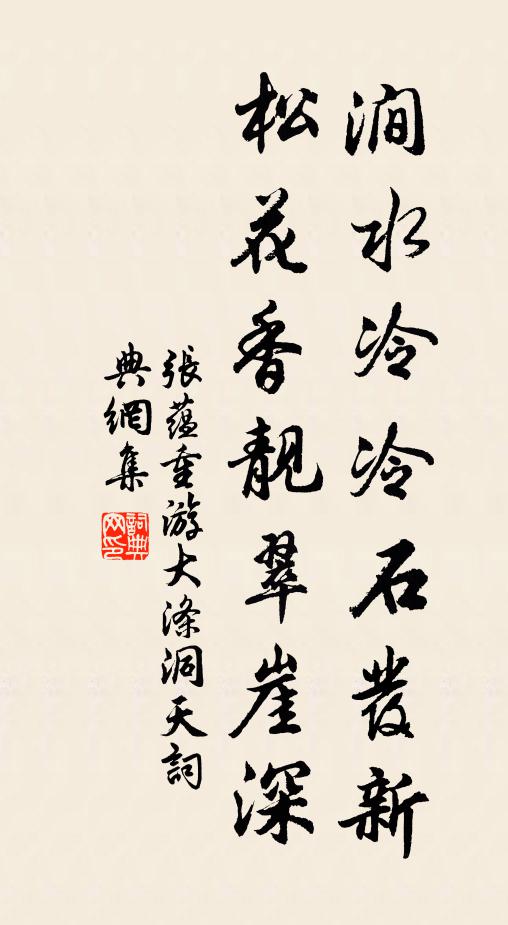 澗水冷冷石發新
松花香靚翠崖深
張蘊重游大滌洞天詞
典網集
詞典網印